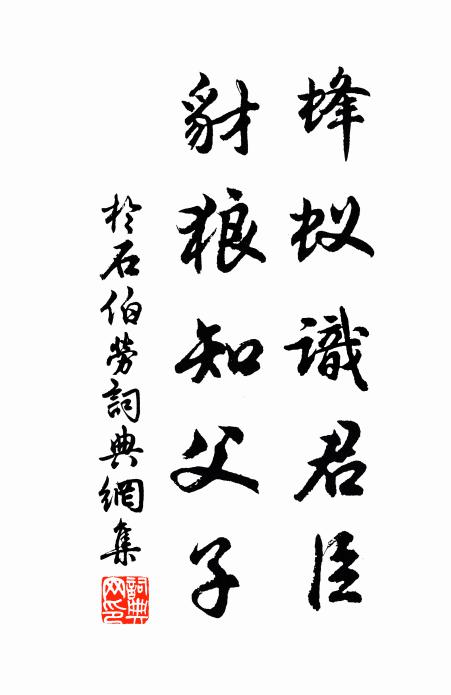 蜂蚁識君臣
豺狼知父子
於石伯勞詞典網集
詞典网印